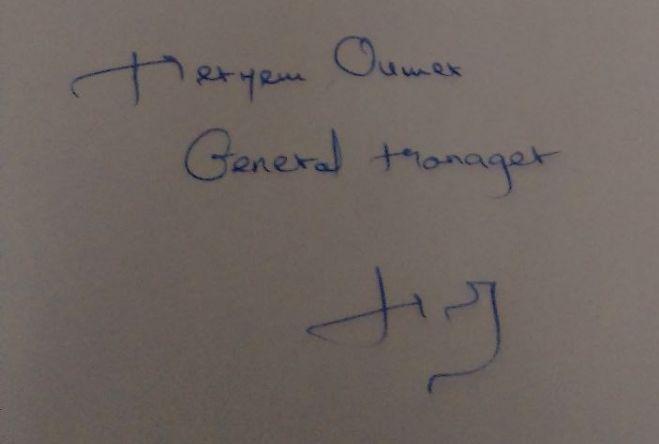 Meryem Oumer
General Manager